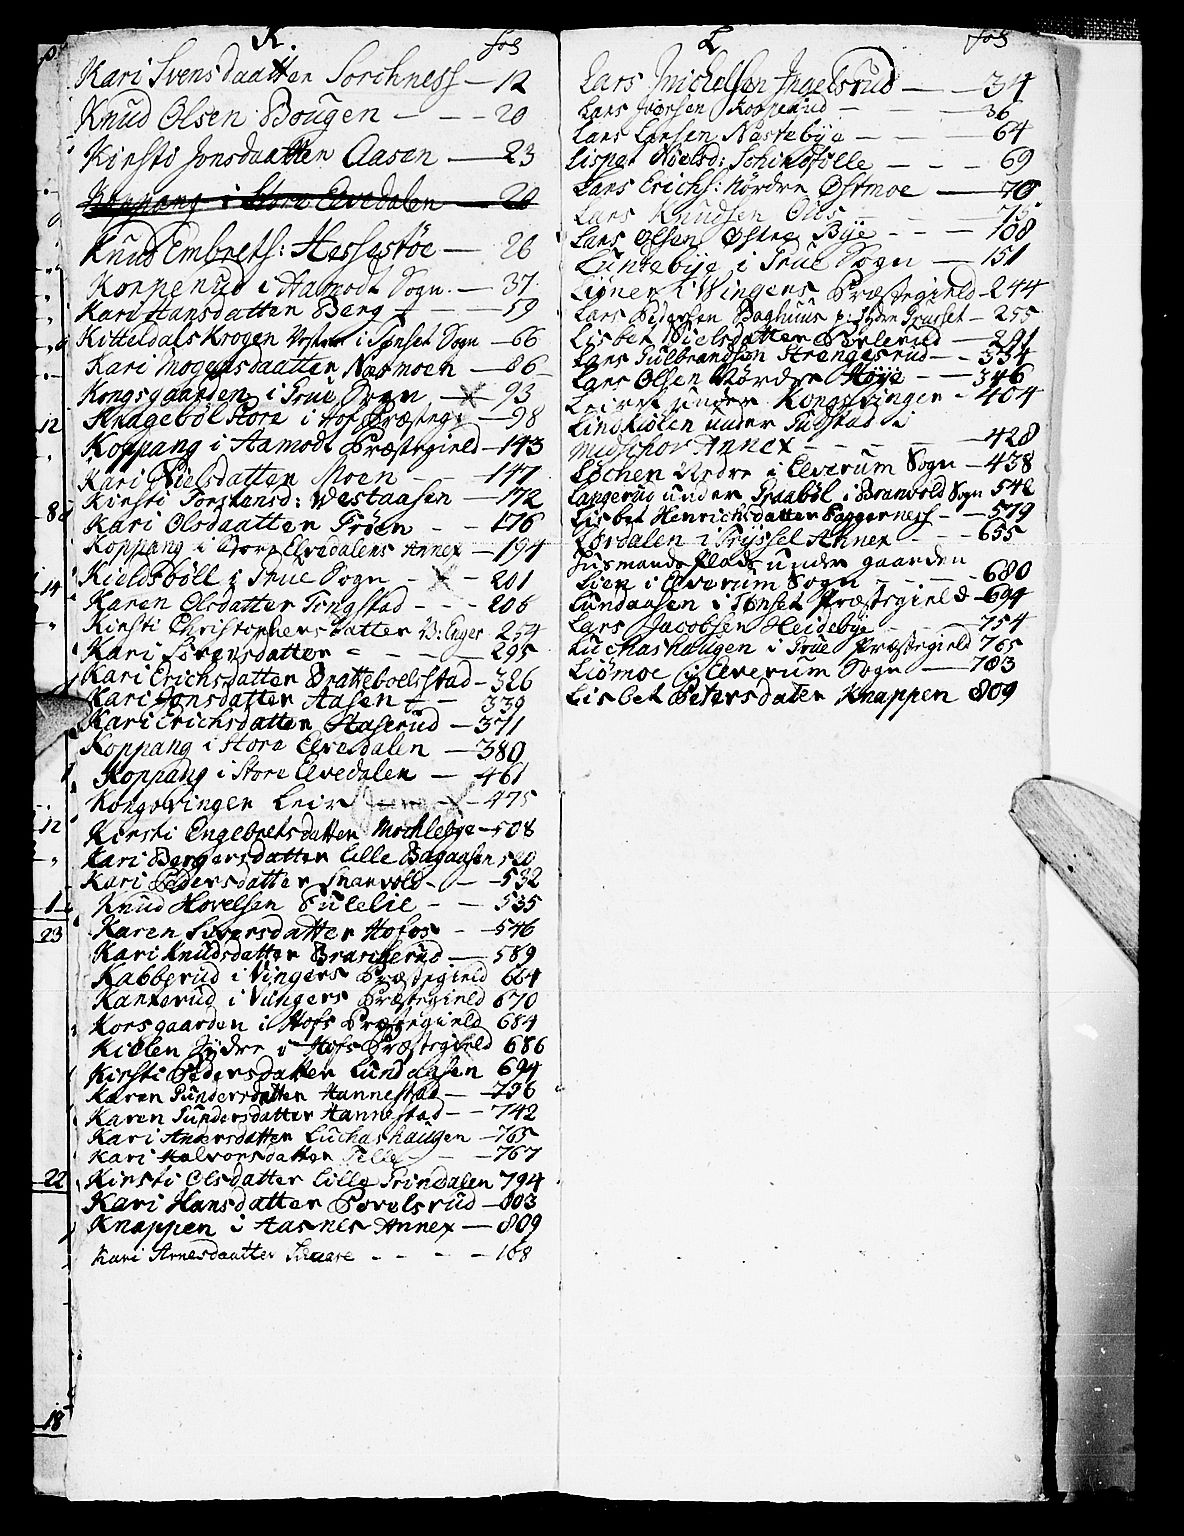 K. fol
Kari Svensdaatter Sorchness — 12
Knud Olsen Bougen - - - 20
Kirsti Jonsdaatter Aasen — 23
Koppang i Store Elvedalen — 20
Knud Embretss: Hessestøe — 26
Kopperud i Aamodt Sogn. — 37.
Kari Hansdatter Berg — 59
Kitteldals Krogen i Tønset Sogn — 66
Kari Mogensdaatter Næsmoen — 86
Kongsgaarden i Grue Sogn — 93
Knageböl Store i Hof Præsteg: — 98
Koppang i Aamodt Præstegield — 143
Kari Nielsdatter Moen — 147
Kirsti Torstensd: Westaasen — 172
Kari Olsdaatter Frøen - - 176
Koppang i Store Elvedalens Annex — 194
Kieldsböll i Grue Sogn - - 201
Karen Olsdatter Tingstad - - - 206
Kirsti Christophersdatter 254
Kari Sørensdatter - - - 295
Kari Erichsdatter Bratteboelsstad — 326
Kari Jonsdatter Aasen — 339
Kari Erichsdatter Haserud — 371
Koppang i Store Elvedalen — 380
Koppang i Store Elvedalen — 461
Kongsvingen Leir — 475
Kirsti Engebretsdatter Mochlebye — 508
Kari Bergersdatter Lille Bagaasen 520
Kari Pedersdatter - - 532
Knud Hovelsen Sulelie - - 535
Karen Siversdatter Hofos - — 546
Kari Knudsdatter Braskerud — 589
Kabberud i Vingers Præstegield 664
Kanterud i Vingers Præstegield 670
Korsgaarden i Hofs Præstegield 684
Kiølen Sydre i Hofs Præstegield 686
Kirsti Pedersdatter Lundaasen 694
Karen Gundersdatter Hannestad — 736
Karen Gundersdatter Hannestad — 742
Kari Andersdatter Luchashaugen — 765
Kari Halvorsdatter — 767
Kirsti Olsdatter Lille Grindalen 794
Kari Hansdatter Povelsrud — 803
Knappen i Aasnes Annex — 809
Kari Arnesdaatter - - - - 168
L fol
Lars Michelsen Ingelsrud — — 34
Lars Kopperud — - — 36
Lars Larsen Næstebye — - — 64
Lisper Nielsd: - - - 69
Lars Erichs: Nordre Østmoe — 70
Lars Knudsen
Lars Olsen Østre Bye - - - 108
Luntebye i Grue Sogn — 151
Ligner i Wingers Præstegield — 244
Lars Pedersen Baghuus — 255
Lisbet Nielsdatter Perlerud — 291
Lars Gulbrandsen Strengesrud — 334
Lars Olsen Nordre Høye — — 346
Leiret under Kongsvinger - 404
Lindkiølen under
Midschov Annex - - - - 428
Løchen Nedre i Elverum Sogn — 438
Langerud under Graaböl i Branvold Sogn 542
Lisbet Henrichsdatter Baggerness — 579
Lørdalen i Tryssel Annex - - - 655
Lusmands Plads under gaarden
Lien i Elverum Sogn - - - 680
Lundaasen i Tønset Præstegield — 694
Lars Jacobsen Heidebye 754
Luchashaugen i Grue Præstegield 765
Liømoe i Elverum Sogn — 783
Lisbet Petersdater Knappen 809
12
8
14
12
1
23
22
18